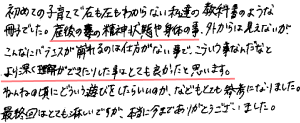 初めての子育てで右も左もわからない私達の教科書のような
冊子でした。産後の妻の精神状態や身体の事、外からは見えないが
こんなにバランスが崩れるのは仕方がない事で、こういう事なんだなと
より深く理解ができたりした事はとても良かったと思います。
ねんねの頃にどういう遊びをしたらいいのか、などもとても参考になりました。
最終回はとても淋しいですが、本当に今までありがとうございました。